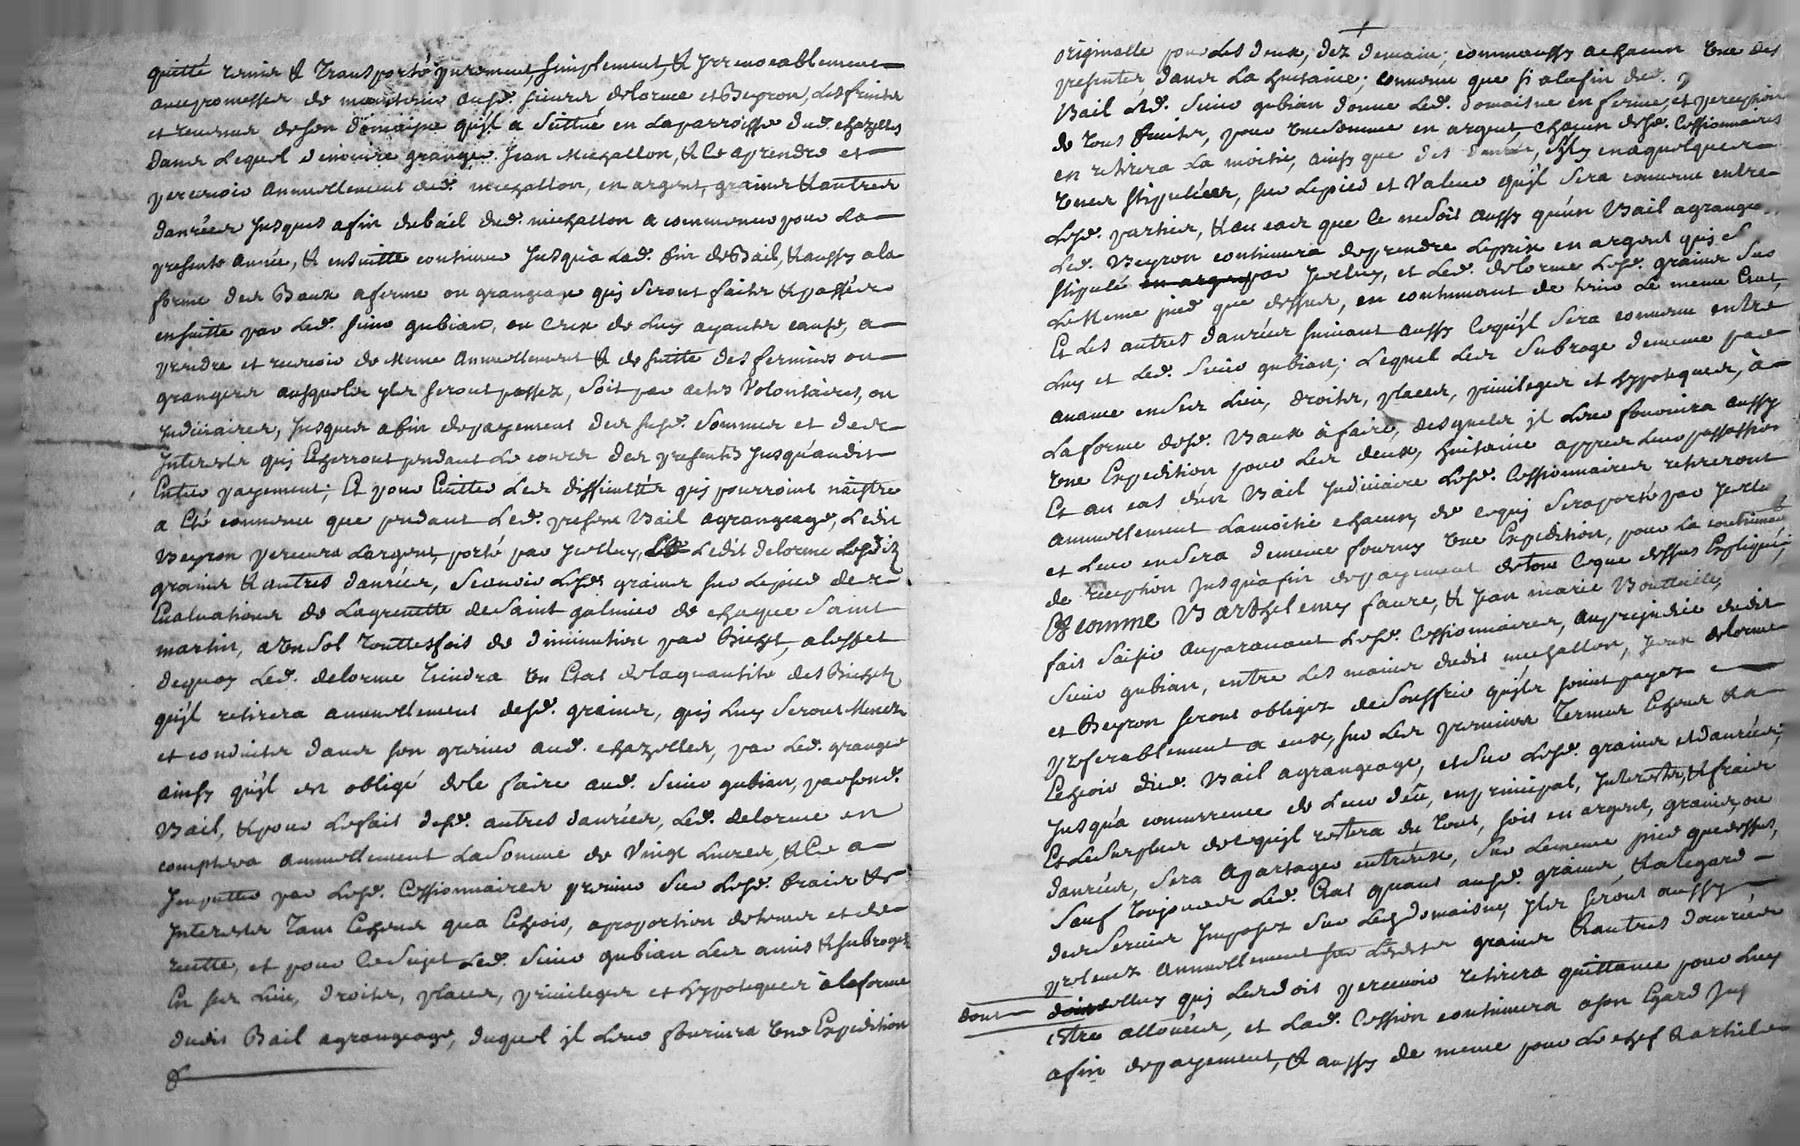 quitté remis & transporté purement simplement, & irrevocablement
avec promesse de maintenir ausd. sieurs delorme et Beyron, les fruits
et revenus de son domaine qu'jl a scittué en la parroisse dud. chazelles
dans lequel demeure granger Jean Michallon, & ce a prendre et
percevoir annuellement dud. michallon, en argent, grains & autres
danrées jusques a fin du bail dud. michallon a commencer pour la
presente année, & ensuitte continuer jusqu'à lad. fin de Bail, & aussy a la
forme des Baux a ferme ou grangeage quj seront faits & passés
ensuitte par led. sieur gubian, ou ceux de luy ayants cause, a
prendre et recevoir de meme annuellement & de suitte des fermiers ou
grangers ausquels jls seront passez, soit par actes volontaires, ou
judiciaires, jusques a fin de payement des susd. sommes et des
jnterests quj echerront pendant le cours des presentes jusqu'audit
entier payement; Et pour Eviter les difficultés quj pourroint naistre
a été convenu que pendant led. present Bail a grangeage, ledit
Beyron percevra l'argent porté par jcelluy, & ledit delorme lesdits
grains & autres danrées, scavoir lesd. grains sur le pied des
Evaluations de la grenette de saint galmier de chaque saint
martin, a un sol touttesfois de diminution par Bichet, a l'effet
dequoy led. delorme tiendra un Etat de la quantité des Bichets
qu'jl retirera annuellement desd. grains, quj luy seront Menez
et conduits dans son grenier aud. chazelles, par led. granger
ainsy qu'jl est obligé de le faire aud. sieur gubian, par sond.
Bail, & pour le fait desd. autres danrées, led. delorme en
comptera annuellement la somme de vingt livres, & ce a
jmputter par lesd. Cessionnaires premier sur lesd. frais &
jnterests tant Echeus qua Echeoir, a proportion de temps et de
reitte, et pour ce sujet led. sieur gubian les a mis & subrogés
En ses lieu, droits, places, privileges et hypoteques à la forme
dudit Bail a grangeage, duquel jl leur fournira une Expedition
originalle pour les deux, dez demain; comme aussy a chacun une des
presentes, dans la huitaine; convenu que si a la fin dud.
Bail led. sieur gubian donne led. domaisne en ferme, et perception
de tous fruits, pour une somme en argent, chacun desd. Cessionnaires
en retirera la moitié, ainsy que des danrées, s'jl y en a quelques
unes stipulées, sur le pied et valeur qu'jl sera convenu entre
lesd. parties, & au cas que ce ne soit aussy qu'un Bail a grangeage
led. Beyron continuera de prendre le prix en argent quj s
stipulé par jcelluy, et led. delorme lesd. grains sur
le Meme pied que dessus, en continuant de tenir le meme Etat,
Et les autres danrées suivant aussy ce qu'jl sera convenu entre
luy et led. sieur gubian; lequel les subroge de meme par
avance en ses lieu, droits, places, privileges et hypoteques, à
la forme desd. Baux à faire, desquels jl leur fournira aussy
une Expedition pour les deux, huitaine apprès leur passassion
Et au cas d'un Bail judiciaire lesd. Cessionnaires retireront
annuellement la moitié chacun, de ce quj sera porté par jcelluy
et leur en sera de meme fourny une Expedition, pour la continuat
de reception jusqu'a fin de payement de tout ce que dessus Expliqué;
Et comme Barthelemy faure, & Jean marie Bouteille,
fait saisir auparavant lesd. Cessionnaires, au prejudice dudit
sieur gubian, entre les mains dudit michallon, jceux delorme
et Beyron seront obligez de souffrir qu'jls soint payez
preferablement a eux, sur les premiers termes Echeus & a
Echeoir dud. Bail a grangeage, et sur lesd. grains et danrées,
jusqu'a concurrence de leur deû, en principal, jnterests, & frais
Et le surplus de ce qu'jl restera du tout, soit en argent, grains, ou
danrées, sera a partager entr'eux, sur le meme pied que dessus,
sauf toujours led. Etat quant ausd. grains, & a l'egard
des servis jmposez sur led. domaisne, jls seront aussy
prelevez annuellement sur lesdits grains & autres danrées
dont celluy quj les doit percevoir retirera quittance pour luy
estre allouées, et lad. Cession continuera a son Egard jus
a fin de payement, & aussy de meme pour le chef & article